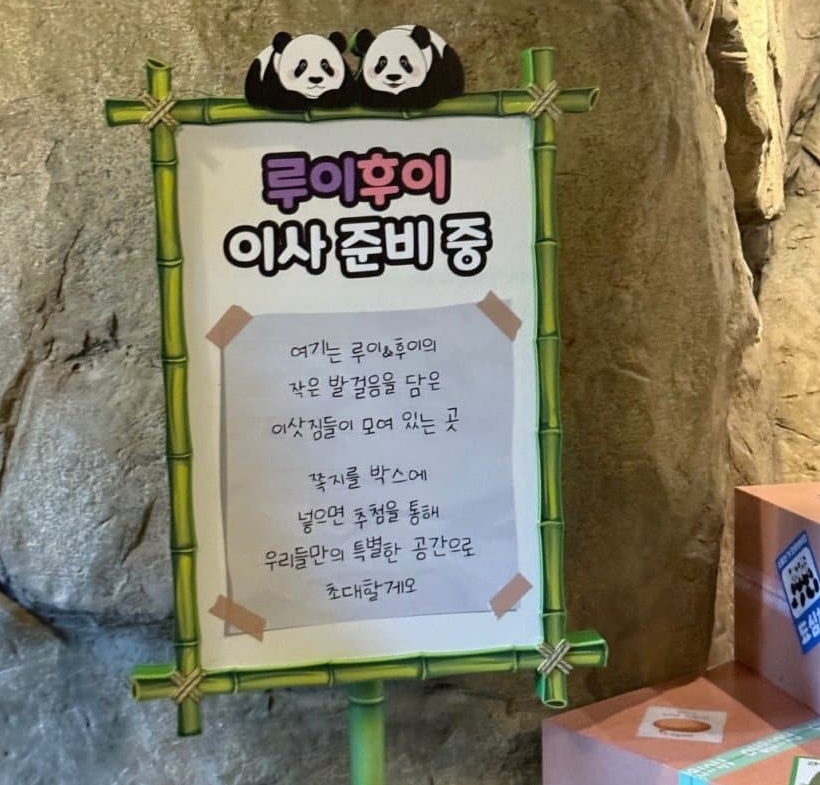 루이후이
이사 준비 중
여기는 루이&후이의
작은 발걸음을 담은
이삿짐들이 모여 있는 곳
쪽지를 박스에
넣으면 추첨을 통해
우리들만의 특별한 공간으로
초대할게요